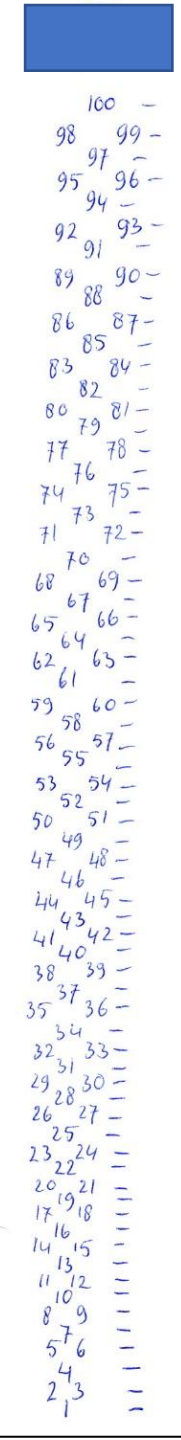 100 –
98 99 –
97 –
95 96 –
94 –
92 93 –
91 –
89 90 –
88 –
86 87 –
85 –
83 84 –
82 –
80 81 –
79 –
77 78 –
76 –
74 75 –
73 –
71 72 –
70 –
68 69 –
67 –
65 66 –
64 –
62 63 –
61 –
59 60 –
58 –
56 57 –
55 –
53 54 –
52 –
50 51 –
49 –
47 48 –
46 –
44 45 –
43 –
41 42 –
40 –
38 39 –
37 –
35 36 –
34 –
32 33 –
31 –
29 30 –
28 –
26 27 –
25 –
23 24 –
22 –
20 21 –
19 –
17 18 –
16 –
14 15 –
13 –
11 12 –
10 –
8 9 –
7 –
5 6 –
4 –
2 3 –
1 –